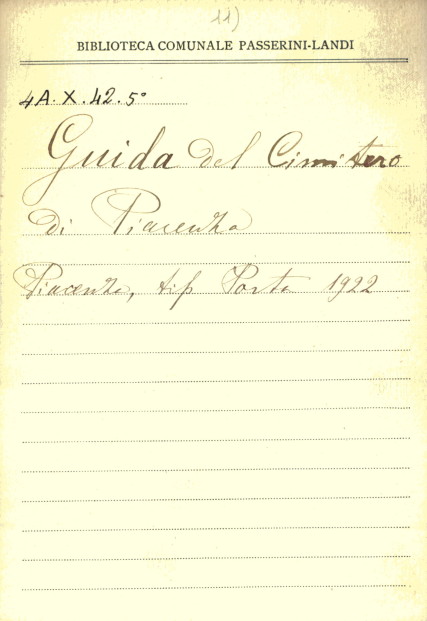 11)
BIBLIOTECA COMUNALE PASSERINI-LANDI
4A. X. 42. 5°
Guida del Cimitero
di Piacenza
Piacenza, tip Porta 1922